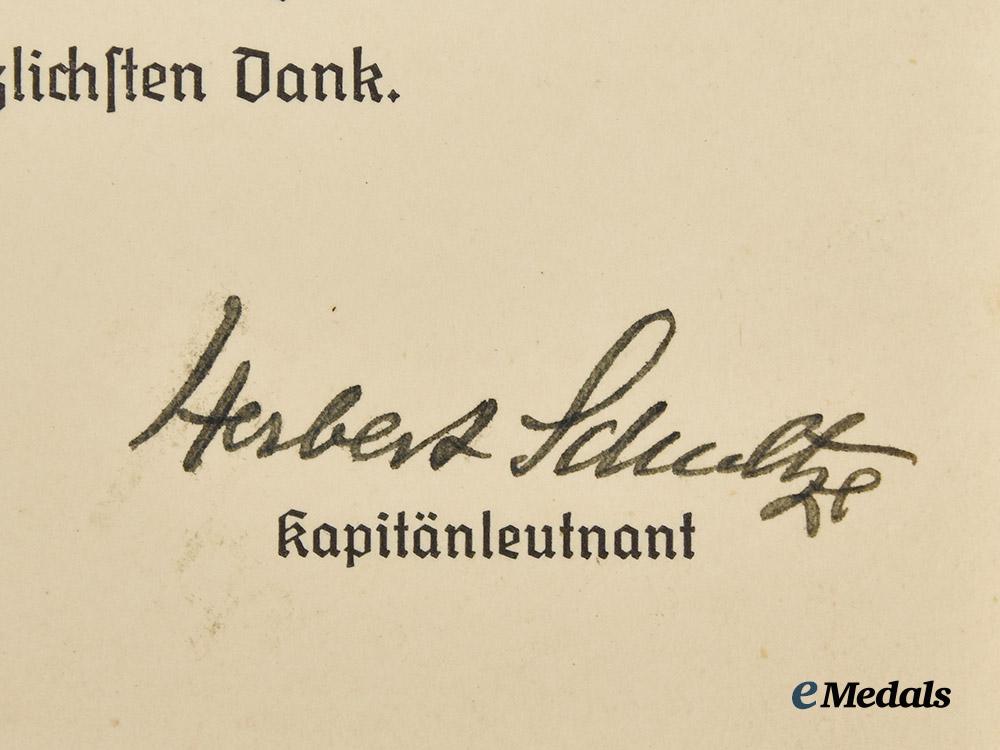 zlichsten Dank.
Herbert Schultze
Kapitänleutnant
eMedals